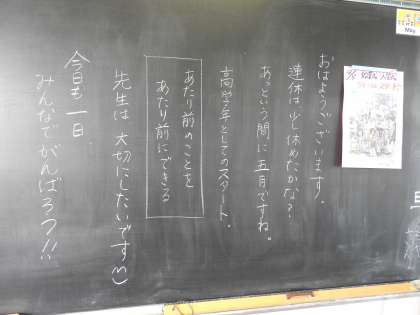 おはようございます。
連休は少し休めたかな？
あっという間に五月ですね。
高学年としてのスタート。
あたり前のことを
あたり前にできる
先生は大切にしたいです(:)
今日も一日
みんなでがんばろう!!
May